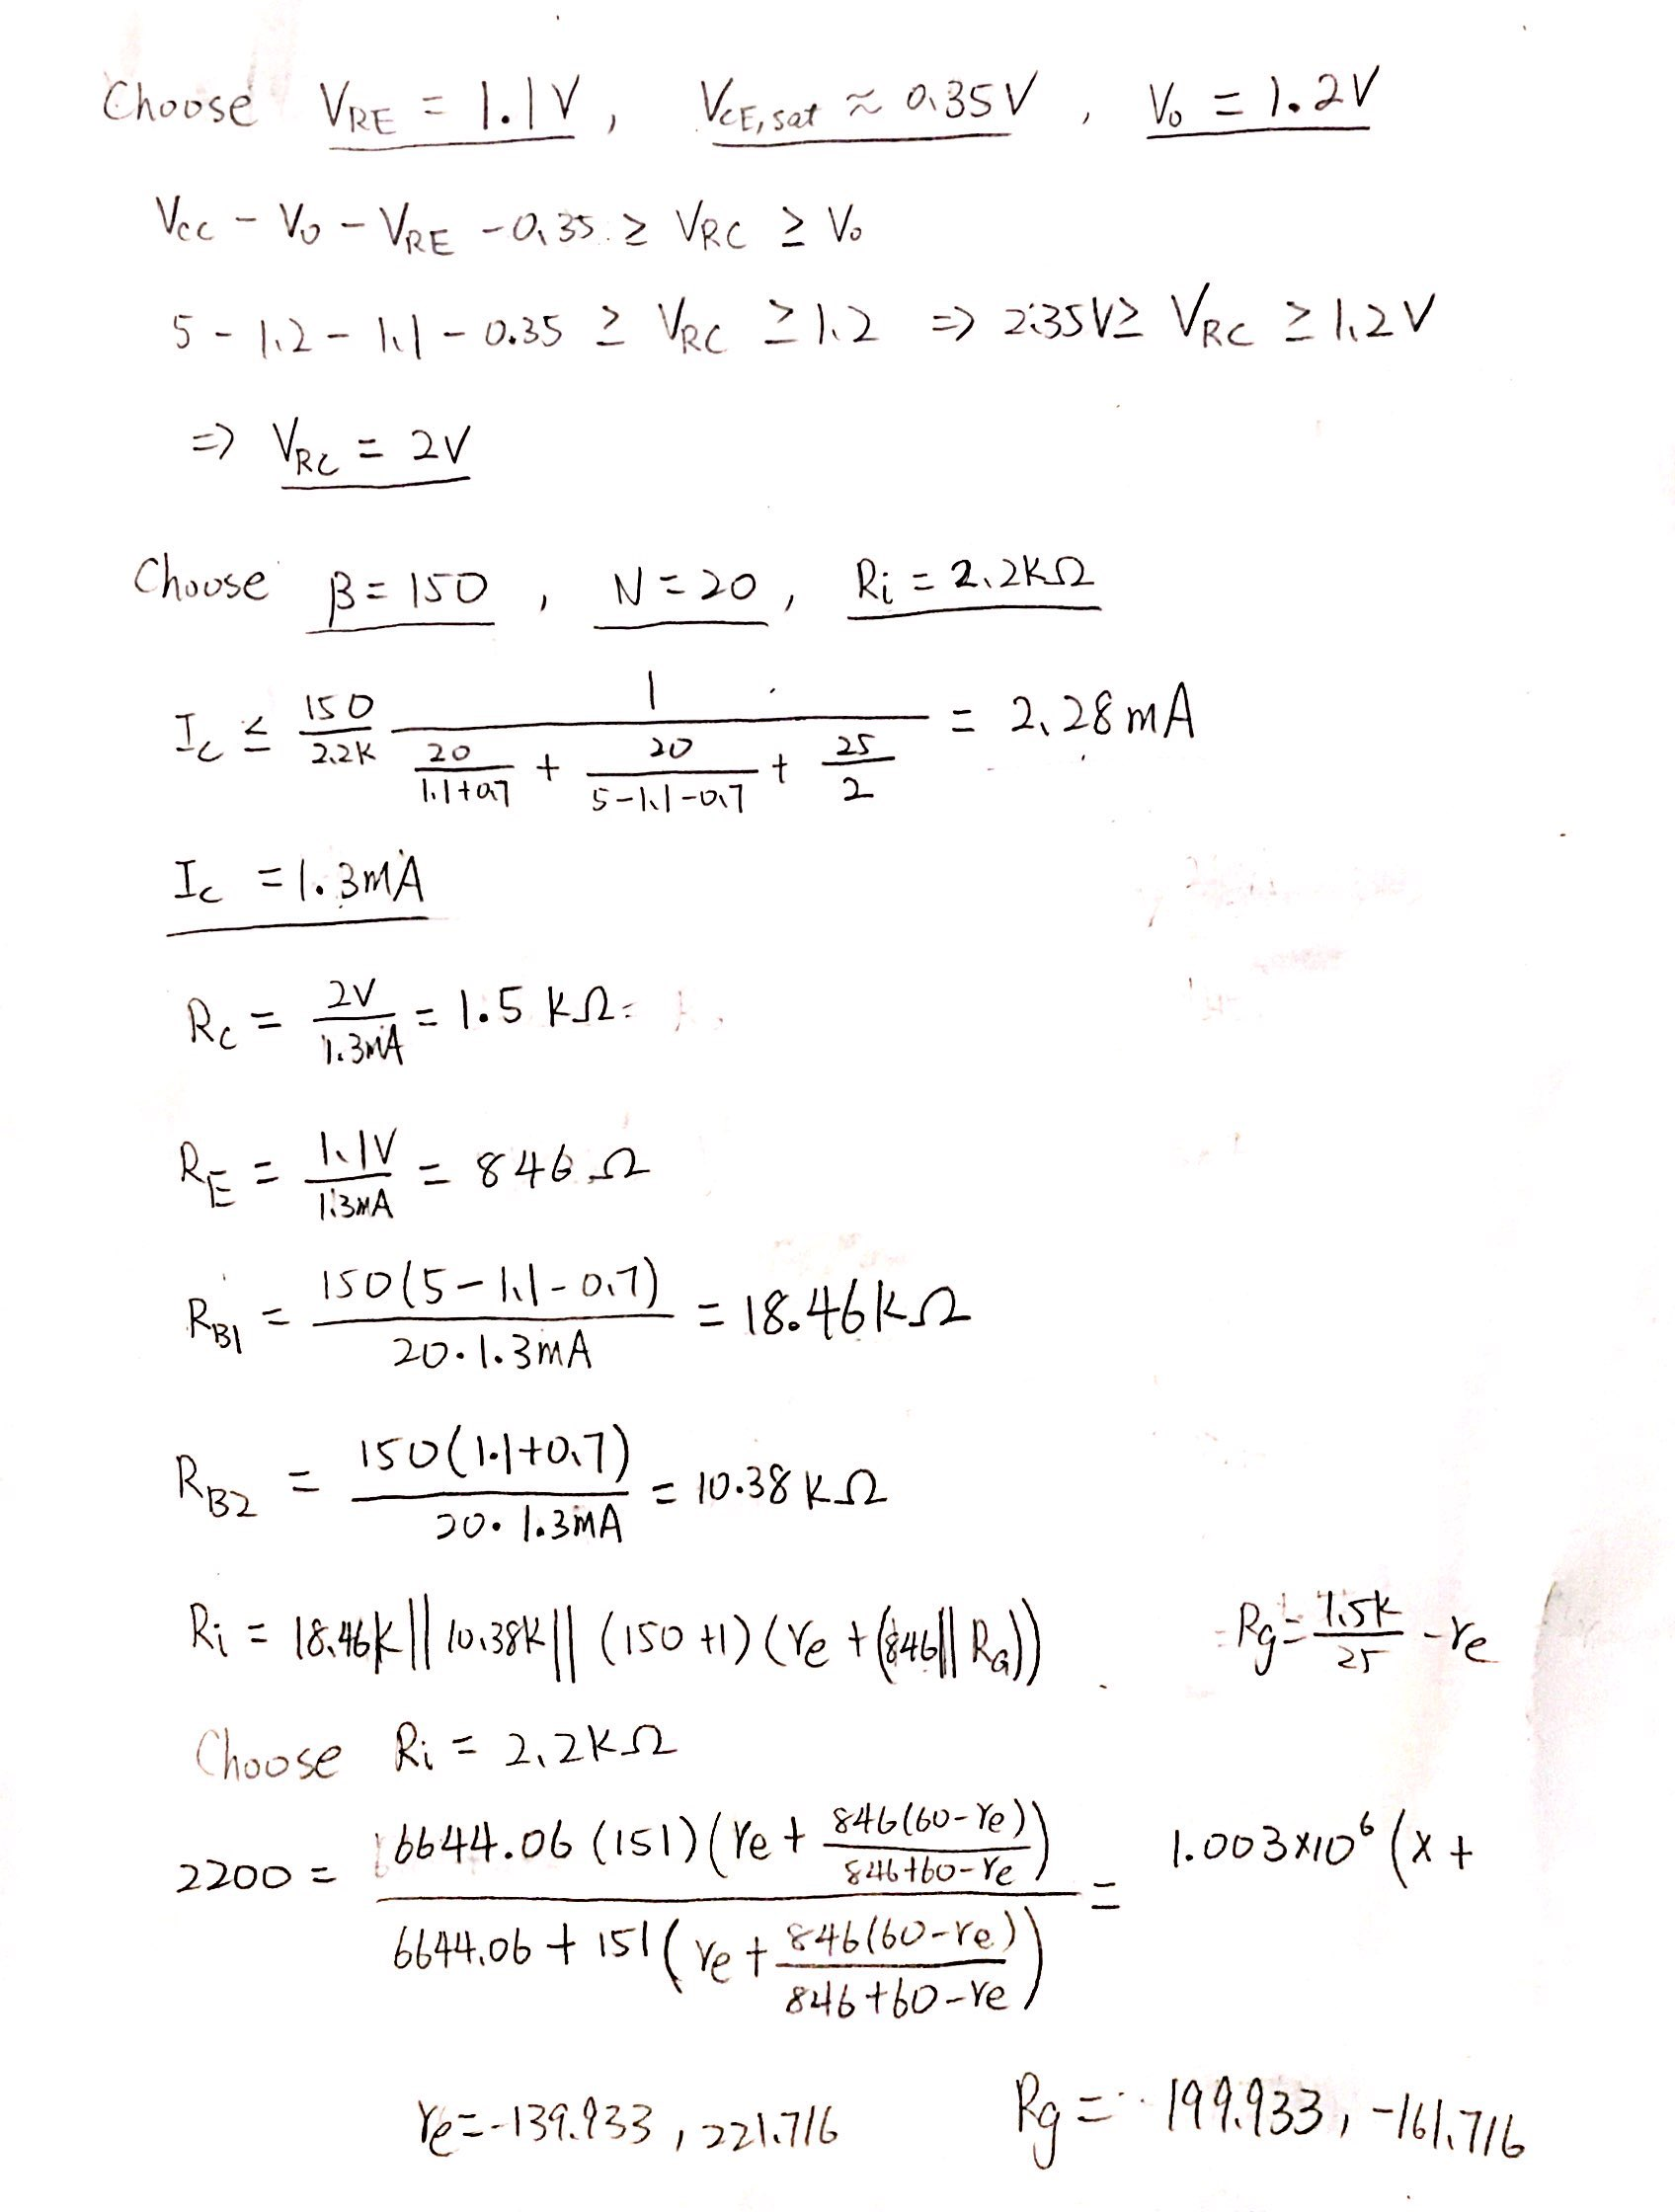 Choose V_RE = 1.1V, V_CE,sat ≈ 0.35V, V_o = 1.2V
V_CC - V_o - V_RE - 0.35 ≥ V_RC ≥ V_o
5 - 1.2 - 1.1 - 0.35 ≥ V_RC ≥ 1.2 => 2.35V ≥ V_RC ≥ 1.2V
=> V_RC = 2V
Choose β = 150, N = 20, Ri = 2.2KΩ
I_c ≤ \frac{150}{2.2K} \frac{1}{\frac{20}{1.1+0.7} + \frac{20}{5-1.1-0.7} + \frac{25}{2}} = 2.28mA
I_c = 1.3mA
R_C = \frac{2V}{1.3mA} = 1.5 KΩ
R_E = \frac{1.1V}{1.3mA} = 846Ω
R_B1 = \frac{150(5-1.1-0.7)}{20·1.3mA} = 18.46KΩ
R_B2 = \frac{150(1.1+0.7)}{20·1.3mA} = 10.38KΩ
Ri = 18.46K || 10.38K || (150+1)(re + (846||R_G)) Rg = \frac{1.5K}{25} - re
Choose Ri = 2.2KΩ
2200 = \frac{6644.06(151)(re + \frac{846(60-re)}{846+60-re})}{6644.06 + 151(re + \frac{846(60-re)}{846+60-re})} = 1.003×10^6 (x +
re = -139.933, 221.716 Rg = 199.933, -161.716